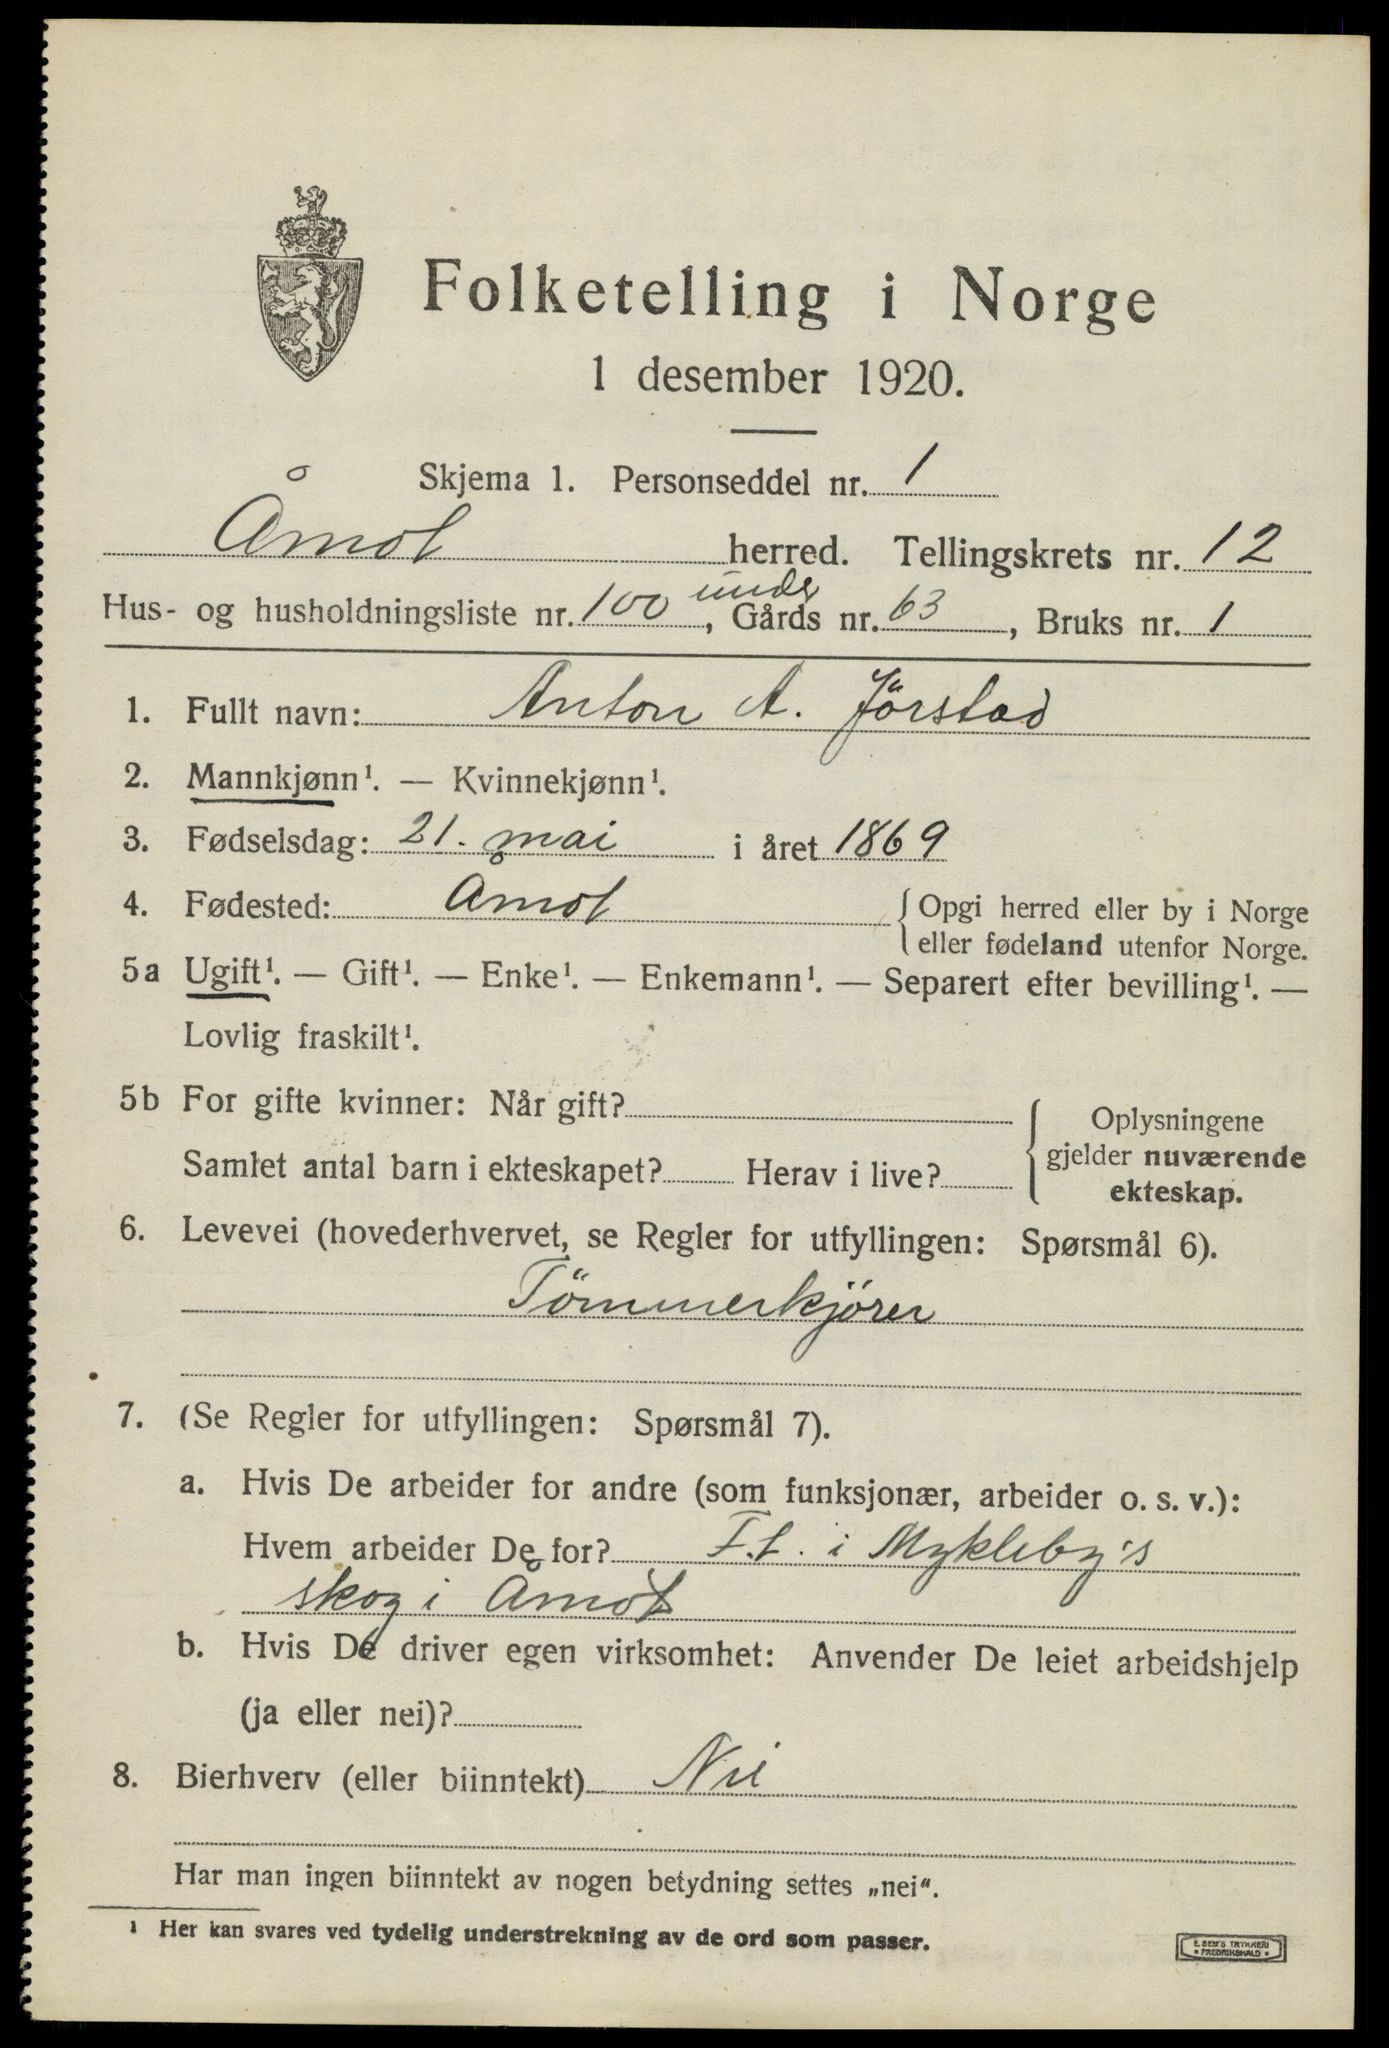 Folketelling i Norge
1 desember 1920.
Skjema 1. Personseddel nr. 1
Åmot herred. Tellingskrets nr. 12
Hus- og husholdningsliste nr. 100 under, Gårds nr. 63, Bruks nr. 1
1. Fullt navn: Anton A. Jörstad
2. Mannkjønn¹. — Kvinnekjønn¹.
3. Fødselsdag: 21. mai i året 1869
4. Fødested: Åmot { Opgi herred eller by i Norge
eller fødeland utenfor Norge.
5a Ugift¹. — Gift¹. — Enke¹. — Enkemann¹. — Separert efter bevilling¹. —
Lovlig fraskilt¹.
5b For gifte kvinner: Når gift?
Samlet antal barn i ekteskapet? Herav i live?
Oplysningene
gjelder nuværende
ekteskap.
6. Levevei (hovederhvervet, se Regler for utfyllingen: Spørsmål 6).
Tömmerkjörer
7. (Se Regler for utfyllingen: Spørsmål 7).
a. Hvis De arbeider for andre (som funksjonær, arbeider o. s. v.):
Hvem arbeider De for? F.t. i Mykleby's
skog i Åmot
b. Hvis De driver egen virksomhet: Anvender De leiet arbeidshjelp
(ja eller nei)?
8. Bierhverv (eller biinntekt) Nei
Har man ingen biinntekt av nogen betydning settes „nei“.
¹ Her kan svares ved tydelig understrekning av de ord som passer.
E. SEM'S TRYKKERI
• FREDRIKSHALD •